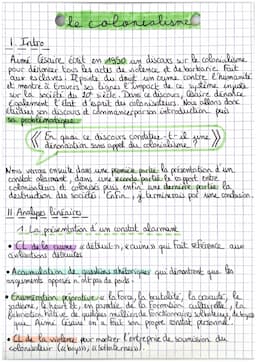 le colonialisme
I. Intro
Aimé Césaire écrit en 1950 un discours sur le colonialisme
pour dénoncer tous les actes de violence, et de barbarie fait
aux esclaves. Il pointe du doigt un crime contre l'humanité
et montre à travers ses lignes l'impact de ce système injuste
sur la société du 20e siècle. Dans ce discours, Césaire dénonce
également l'état d'esprit du colonisateurs. Nous allons donc
étudier son discours et commencer par son introduction puis
sa problématique:
« En quoi ce discours constitue-t-il une
dénonciation sans appel du colonialisme? »
Nous verrons ensuite dans une première partie la présentation d'un
constat alarmant, dans une seconde partie le rapport entre
colonisateurs et colonisés puis enfin, une dernière partie la
destruction des sociétés. Enfin, je terminerai par une conclusion.
II. Analyse linéaire
1. La présentation d'un constat alarmant
• CL de la ruine « détruit », « ruines » qui fait référence aux
civilisations détruites
• Accumulation de questions rhétoriques qui démontrent que les
arguments opposés n'ont pas de poids.
• Énumération péjorative « la force, la brutalité, la cruauté, le
sadisme, le heurt et, en parodie de la formation culturelle, la
fabrication hâtive de quelques milliers de fonctionnaires subalternes, de boys
que Aimé Césaire en a fait son propre constat personnel.
• CL de la violence pour montrer l'entreprise de soumission du
colonisateur